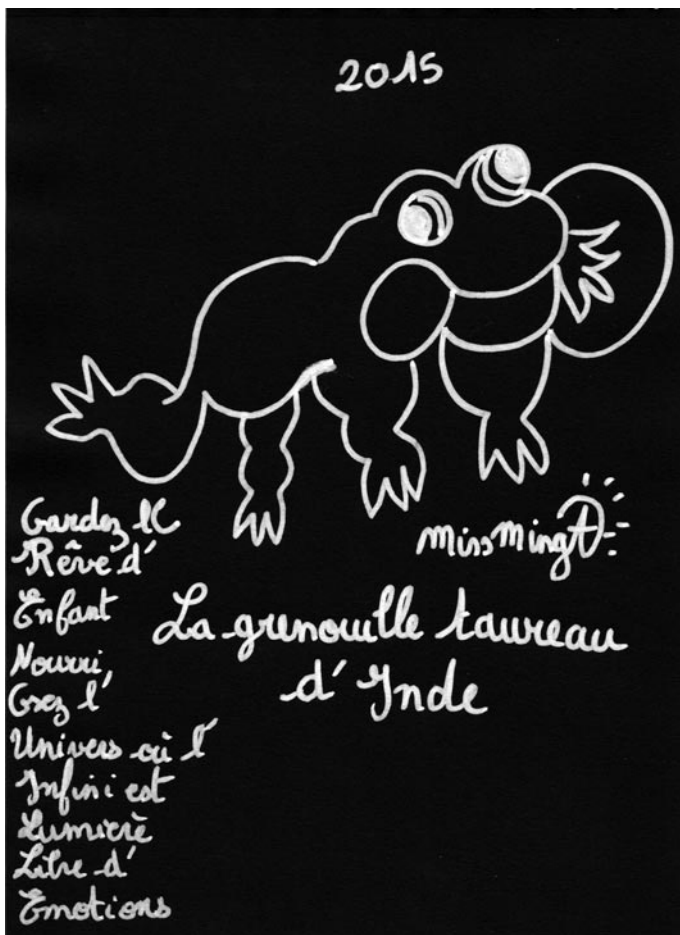 2015
Gardez le
Rêve d'
Enfant
Nourri,
Osez l'
Univers où l'
Infini est
Lumière
Libre d'
Emotions
missming
La grenouille taureau
d'Inde